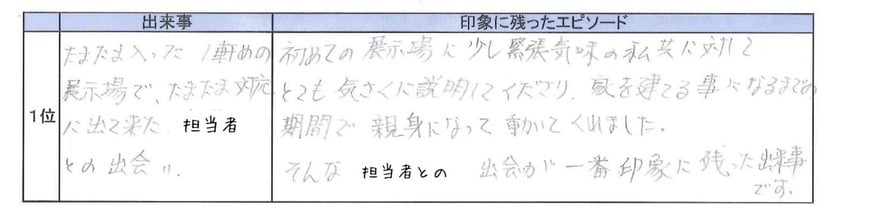 出来事
印象に残ったエピソード
1位
たまたま入った1軒めの
展示場で、たまたま対応
に出て来た 担当者
との出会い。
初めての展示場に少し緊張気味の私共に対して
とても気さくに説明してくださり、家を建てる事になるまでの
期間で親身になって動いてくれました。
そんな 担当者との 出会いが一番印象に残った出来事
です。